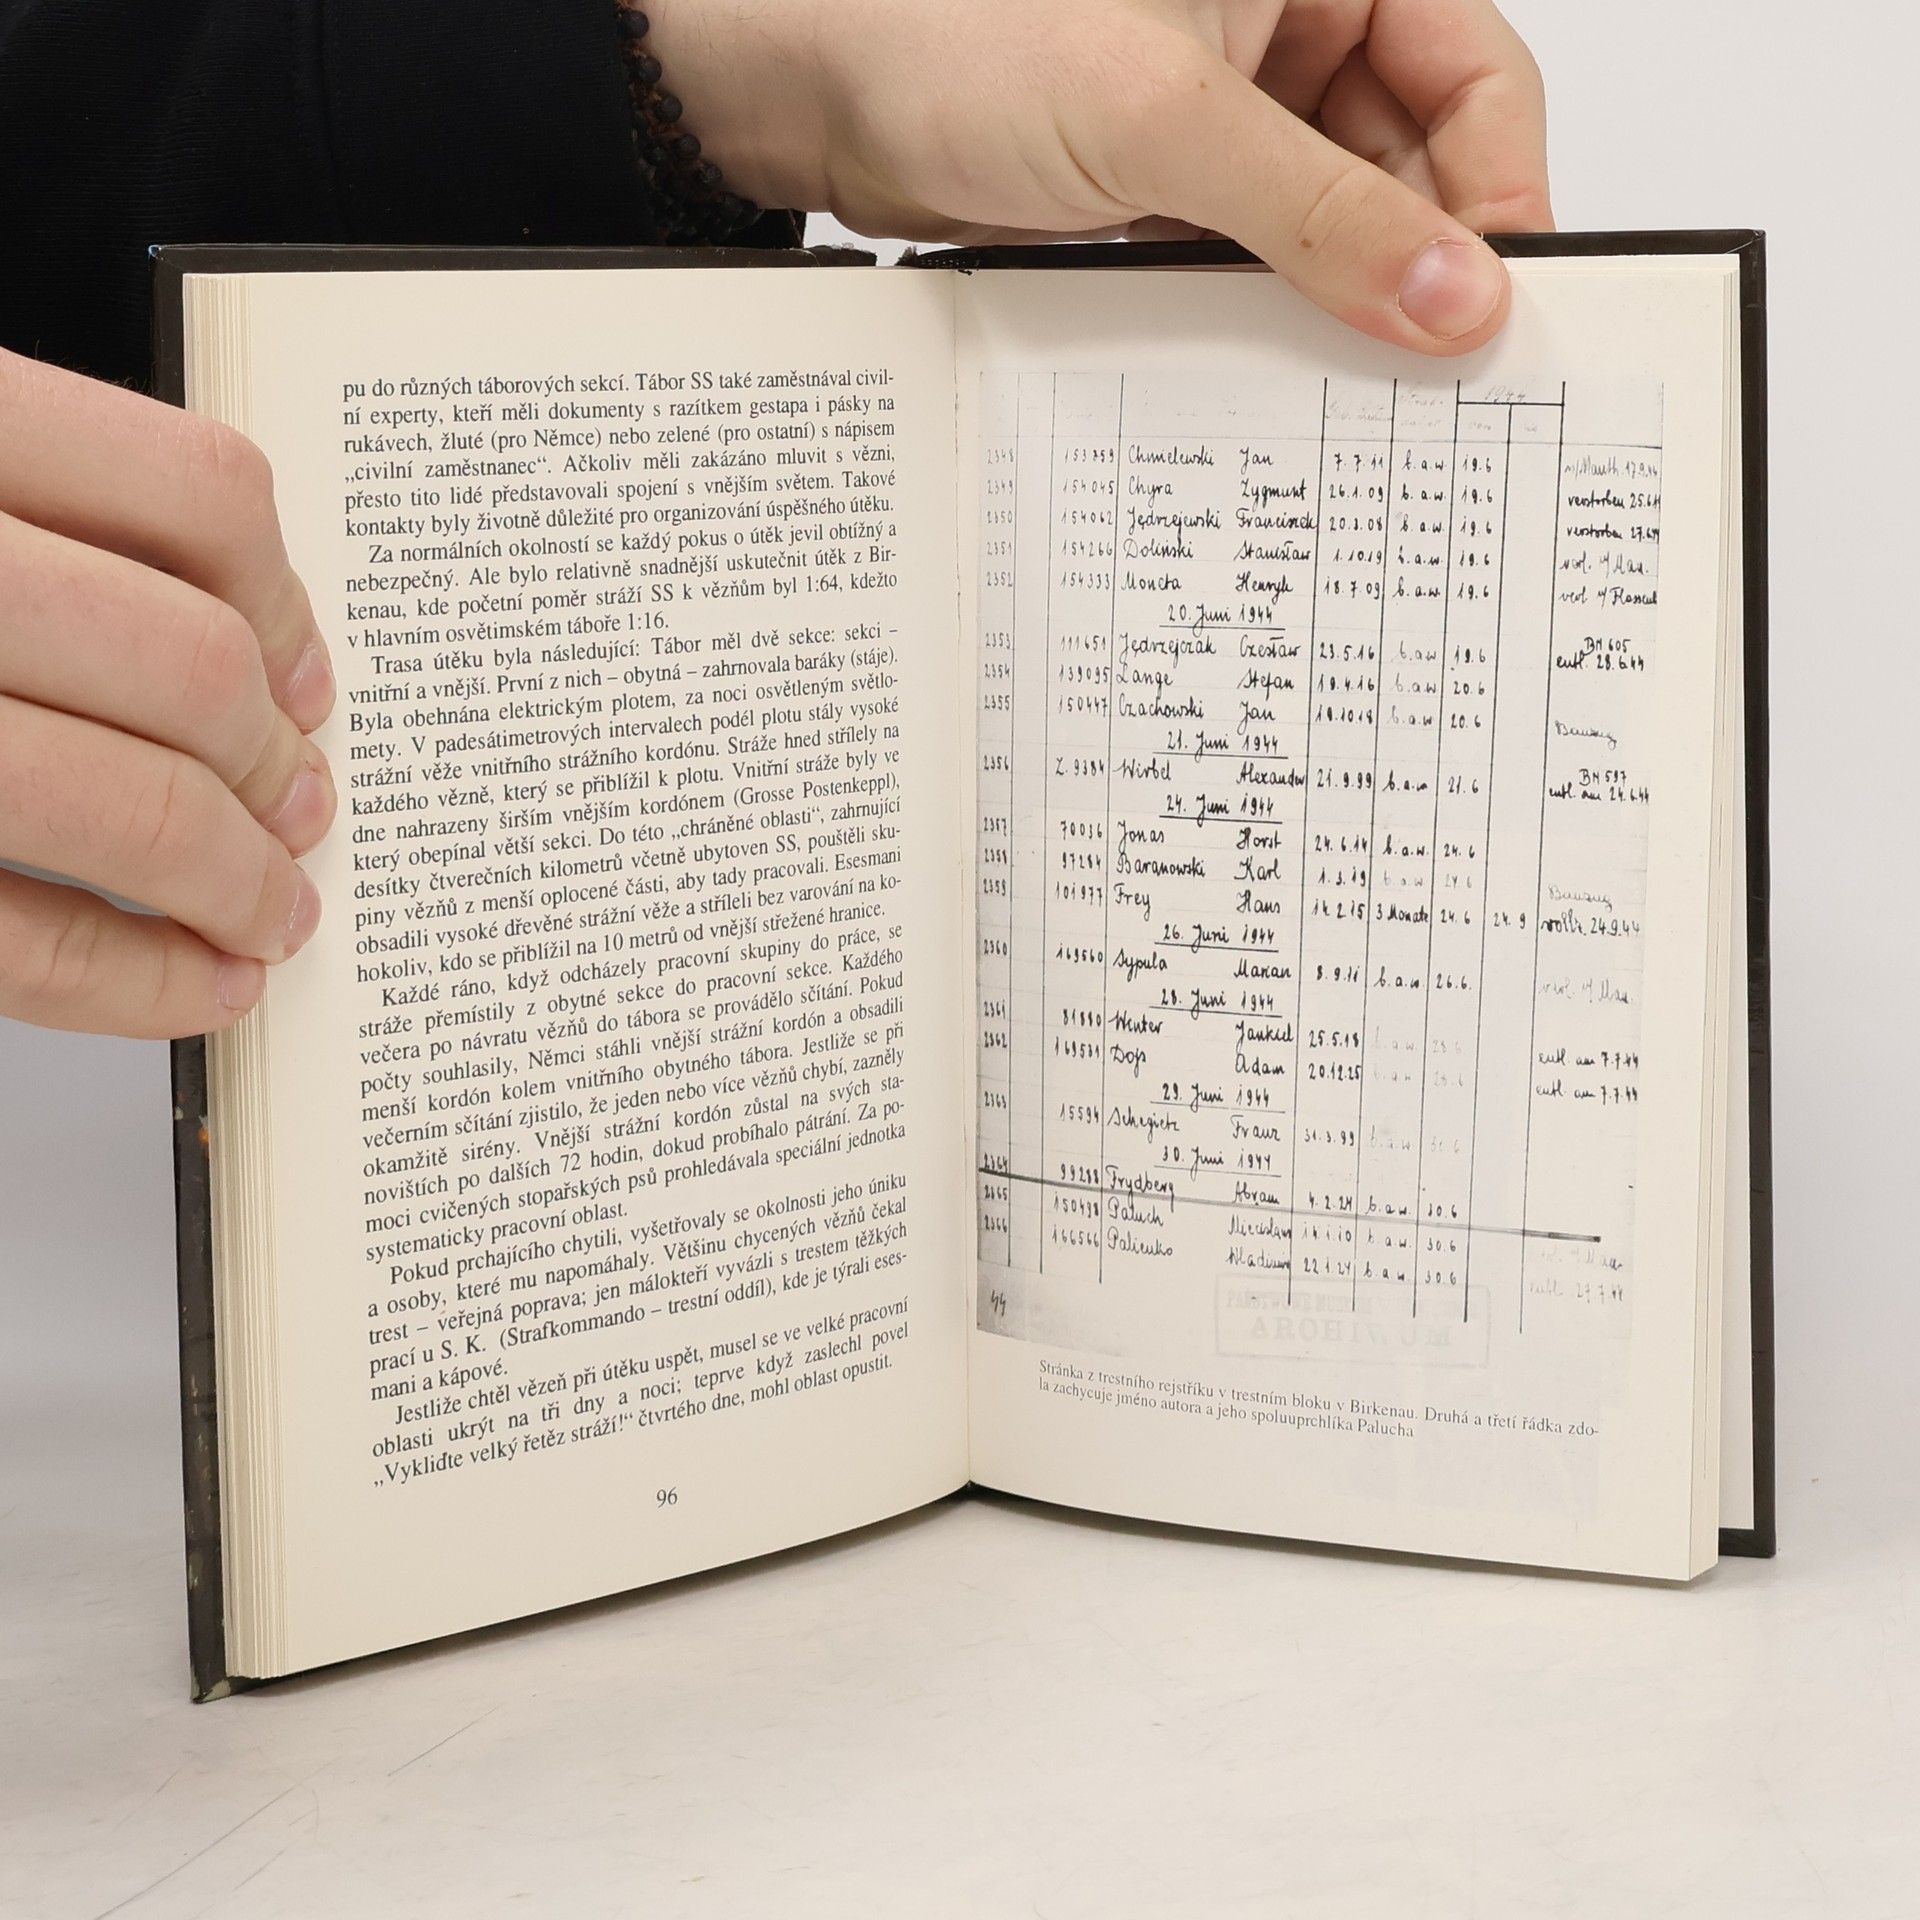 pu do různých táborových sekcí. Tábor SS také zaměstnával civil-
ní experty, kteří měli dokumenty s razítkem gestapa i pásky na
rukávech, žluté (pro Němce) nebo zelené (pro ostatní) s nápisem
„civilní zaměstnanec“. Ačkoliv měli zakázáno mluvit s vězni,
přesto tito lidé představovali spojení s vnějším světem. Takové
kontakty byly životně důležité pro organizování úspěšného útěku.
Za normálních okolností se každý pokus o útěk jevil obtížný a
nebezpečný. Ale bylo relativně snadnější uskutečnit útěk z Bir-
kenau, kde početní poměr stráží SS k vězňům byl 1:64, kdežto
v hlavním osvětimském táboře 1:16.
Trasa útěku byla následující: Tábor měl dvě sekce: sekci –
vnitřní a vnější. První z nich – obytná – zahrnovala baráky (stáje).
Byla obehnána elektrickým plotem, za noci osvětleným světlo-
mety. V padesátimetrových intervalech podél plotu stály vysoké
strážní věže vnitřního strážního kordónu. Stráže hned střílely na
každého vězně, který se přiblížil k plotu. Vnitřní stráže byly ve
dne nahrazeny širším vnějším kordónem (Grosse Postenkeppl),
který obepínal větší sekci. Do této „chráněné oblasti“, zahrnující
desítky čtverečních kilometrů včetně ubytoven SS, pouštěli sku-
piny vězňů z menší oplocené části, aby tady pracovali. Esesmani
obsadili vysoké dřevěné strážní věže a stříleli bez varování na ko-
hokoliv, kdo se přiblížil na 10 metrů od vnější střežené hranice.
Každé ráno, když odcházely pracovní skupiny do práce, se
stráže přemístily z obytné sekce do pracovní sekce. Každého
večera po návratu vězňů do tábora se provádělo sčítání. Pokud
počty souhlasily, Němci stáhli vnější strážní kordón a obsadili
menší kordón kolem vnitřního obytného tábora. Jestliže se při
večerním sčítání zjistilo, že jeden nebo více vězňů chybí, zazněly
okamžitě sirény. Vnější strážní kordón zůstal na svých sta-
novištích po dalších 72 hodin, dokud probíhalo pátrání. Za po-
moci cvičených stopařských psů prohledávala speciální jednotka
systematicky pracovní oblast.
Pokud prchajícího chytili, vyšetřovaly se okolnosti jeho úniku
a osoby, které mu napomáhaly. Většinu chycených vězňů čekal
trest – veřejná poprava; jen málokteří vyvázli s trestem těžkých
prací u S. K. (Strafkommando – trestní oddíl), kde je týrali eses-
mani a kápové.
Jestliže chtěl vězeň při útěku uspět, musel se ve velké pracovní
oblasti ukrýt na tři dny a noci; teprve když zaslechl povel
„Vykliďte velký řetěz stráží!“ čtvrtého dne, mohl oblast opustit.
96
1944
2348 153759 Chmielewski Jan 7.7.11 b.a.w. 19.6 n/Mauth. 17.9.44
2349 154045 Chyra Zygmunt 26.1.09 b.a.w. 19.6 verstorben 25.6.44
2350 154062 Jędrzejewski Franciszek 20.3.08 b.a.w. 19.6 verstorben 27.6.44
2351 154266 Doliński Stanisław 1.10.19 b.a.w. 19.6 verl. n/Mau.
2352 154333 Moneta Henryk 18.7.09 b.a.w. 19.6 verl n/Flossenb
20. Juni 1944
2353 111651 Jędrzejczak Czesław 23.5.16 b.a.w 19.6 BN 605 entl. 28.6.44
2354 139095 Lange Stefan 19.4.16 b.a.w 20.6
2355 150447 Czachowski Jan 19.10.18 b.a.w 20.6
21. Juni 1944
2356 Z. 9384 Wirbel Alexander 21.9.99 b.a.w 21.6 BN 597 entl. am 24.6.44
24. Juni 1944
2357 70036 Jonas Horst 24.6.14 b.a.w. 24.6
2358 97284 Baranowski Karl 1.3.19 b.a.w 24.6
2359 101977 Frey Hans 14.2.15 3 Monate 24.6 24.9 24.9.44
26. Juni 1944
2360 169560 Sypula Marian 8.9.11 b.a.w. 26.6. verl. n/Mau.
28. Juni 1944
2361 81880 Wenter Jankiel 25.5.18 b.a.w. 28.6 entl. am 7.7.44
2362 169531 Dojs Adam 20.12.25 b.a.w 28.6 entl. am 7.7.44
29. Juni 1944
2363 15594 Franz 31.3.99 b.a.w.
30. Juni 1944
2364 99288 Frydberg Abram 4.2.24 b.a.w. 30.6
2365 150498 Paluch Mieczislaw 14.1.10 b.a.w. 30.6
2366 166566 Palienko Wladimir 22.1.24 b.a.w. 30.6 entl. 27.7.44
44
Stránka z trestního rejstříku v trestním bloku v Birkenau. Druhá a třetí řádka zdo-
la zachycuje jméno autora a jeho spoluuprchlíka Palucha